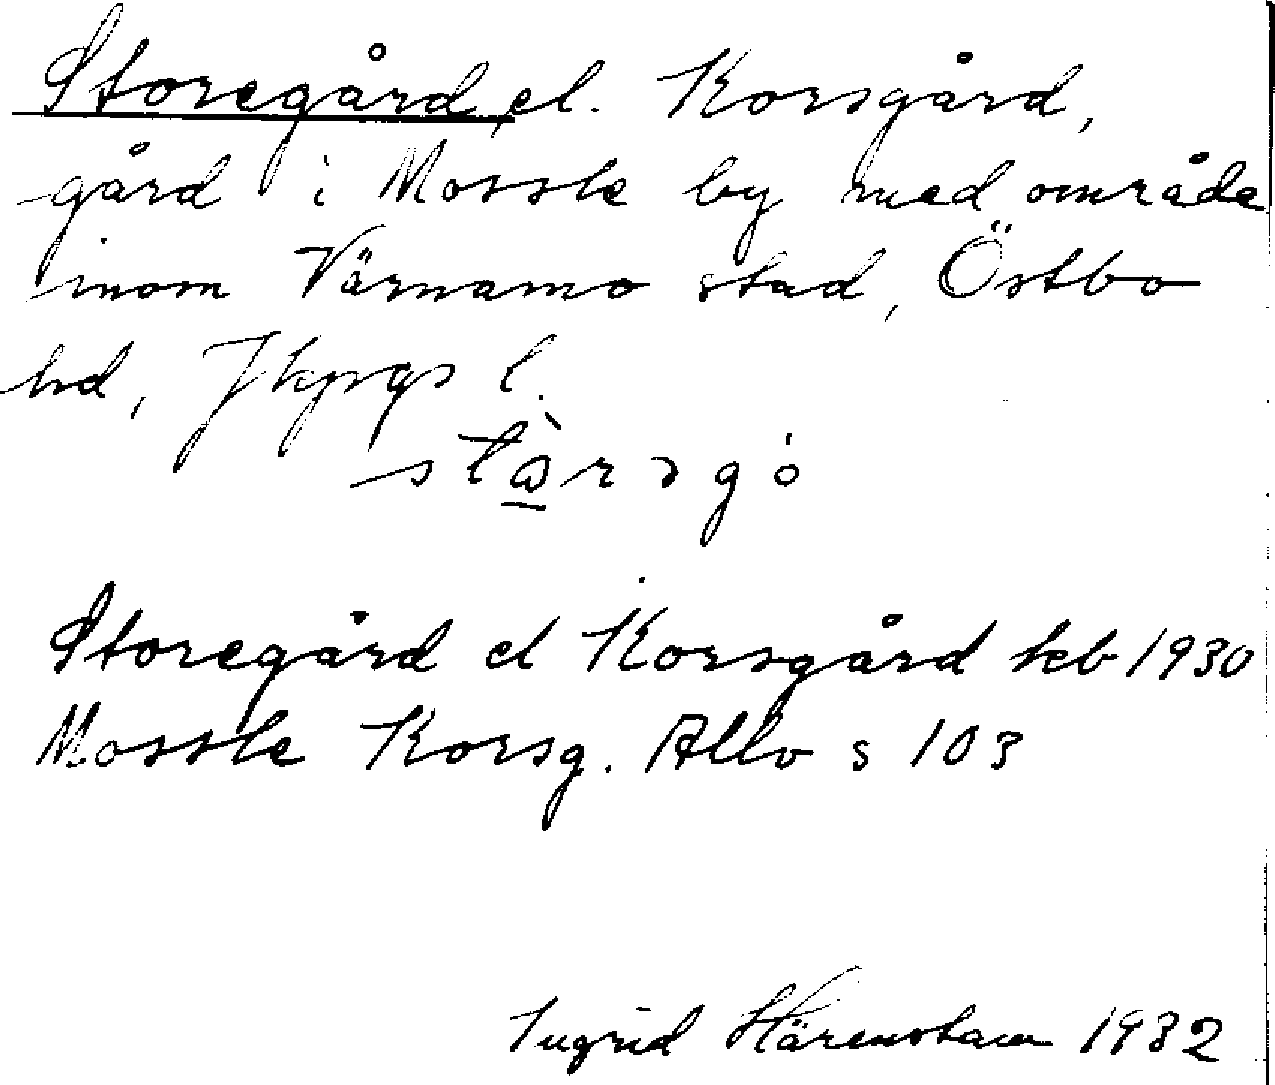 Storegård el. Korsgård,
gård i Mossle by med område
inom Värnamo stad, Östbo
hd, Jkpgs l.
Storegård el Korsgård kb 1930
Mossle Korsg. Allv s 103
Ingrid Härenstam 1932